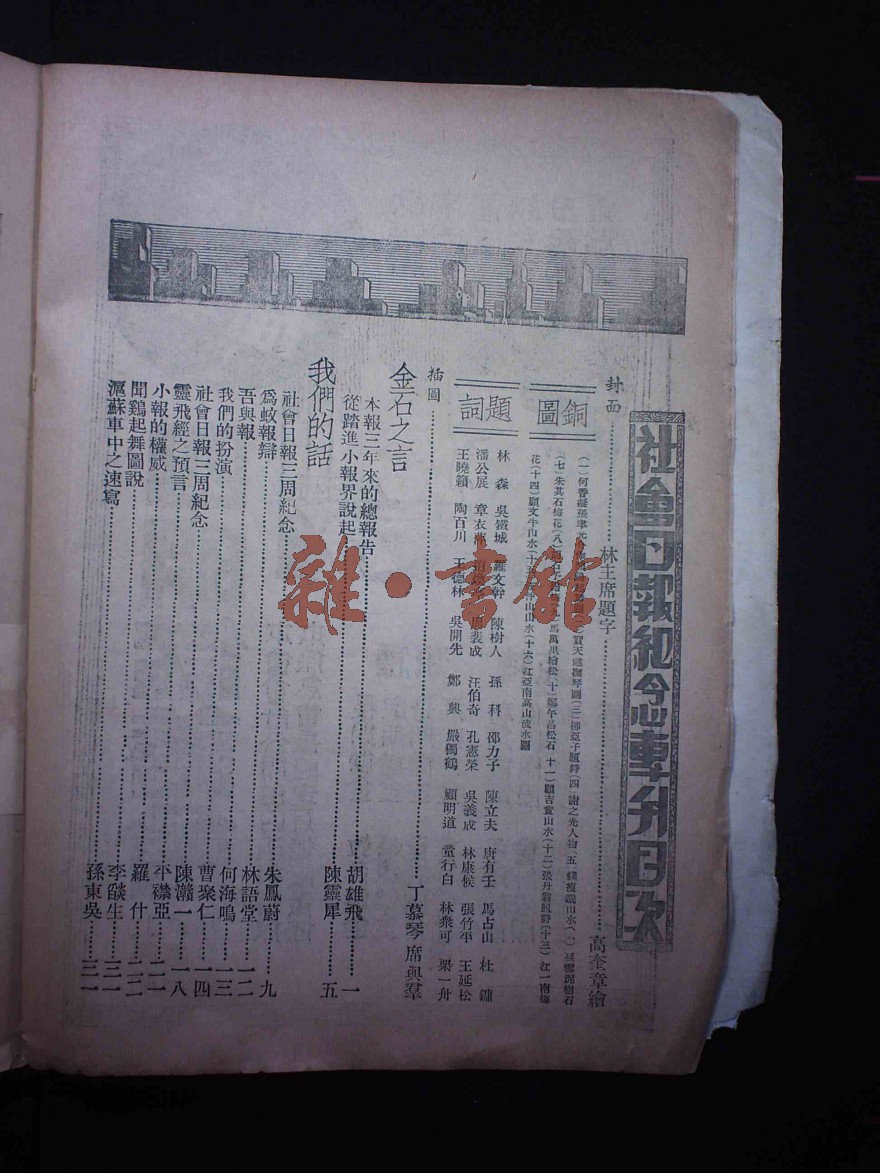 社會日報紀念專刊目次
封面………林主席題字………高奎章繪
銅圖
(七)朱其石梅花(八)
馬萬里繪松(十)鄭午昌松石
十一)顧吉萱山水(十二)張丹翁
(十三)江一南梅
花(十四)顧文牛山水(十五
山山水(十六)江亞南高山流水圖
題詞
林森 吳鐵城 羅文幹 陳樹人 孫科 邵力子 陳立夫 唐有壬 馬占山 杜鏞
潘公展 章衣萍
裴成 汪伯奇 孔憲榮 吳義成 林康候 張竹平 王延松
王曉籟 陶百川 王德林 吳開先 鄭興 嚴獨鶴 顧明道 童行白 林衆可 梁一舟
插圖………丁慕琴 席與羣
金石之言
本報三年來的總報告………胡雄飛………一
從踏進小報界說起………陳靈犀………五
我們的話
社會日報三周紀念………朱鳳蔚………九
爲蚊報辯………林語堂………一二
吾與報………何海鳴………一三
我們的扮演………曹聚仁………一四
社會日報三周紀念………陳灨一………一八
靈飛經之預言………平襟亞………二一
小報的權威………羅什………二二
聞鷄起舞圖說………李燄生………三一
滬蘇車中之速寫………孫東吳………三一
雜·書館